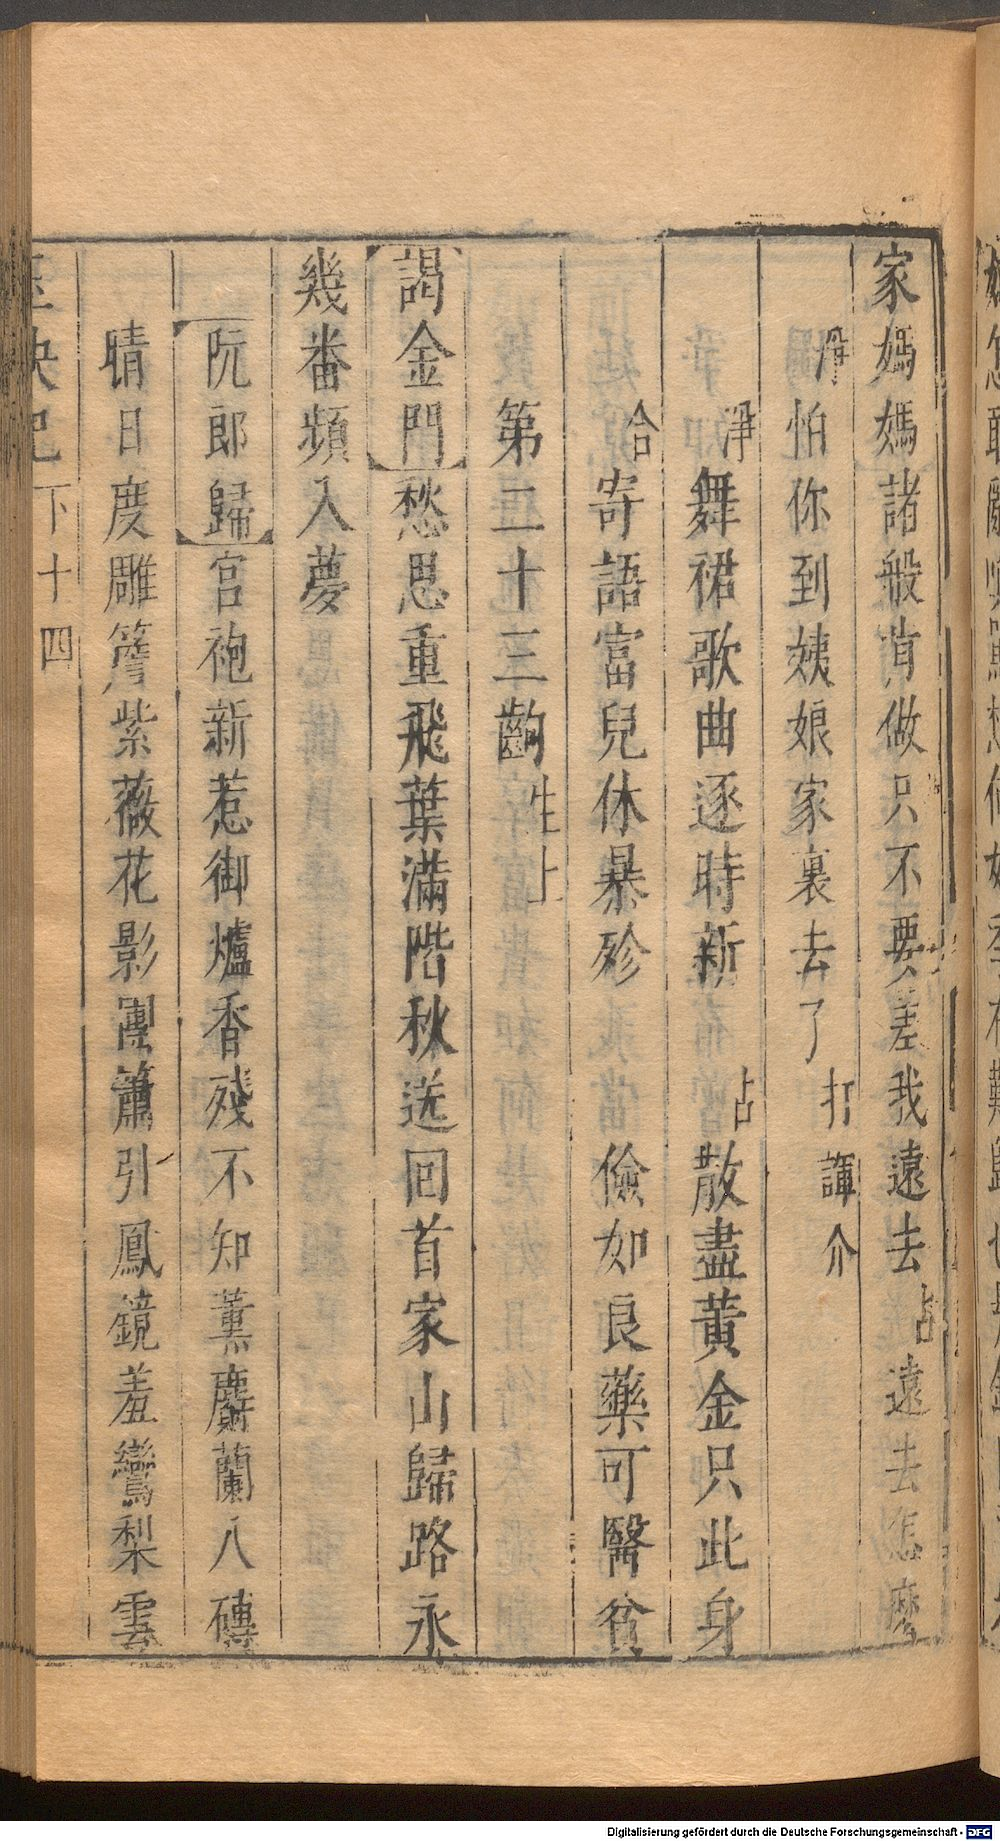 家媽媽諸般肯做只不要差我遠去占遠去怎麽
淨怕你到姨娘家裏去了打諢介
淨舞裙歌曲逐時新 占散盡黃金只此身
合寄語富兒休暴殄 儉如良藥可醫貧
第二十三齣生上
謁金門愁思重飛葉滿階秋送回首家山歸路永
幾番頻入夢
阮郎歸宮袍新惹御爐香殘不知薰麝蘭八磚
晴日度雕簷紫薇花影團簫引鳳鏡羞鸞梨雲
玉玦記 下十四
Digitalisierung gefördert durch die Deutsche Forschungsgemeinschaft - DFG